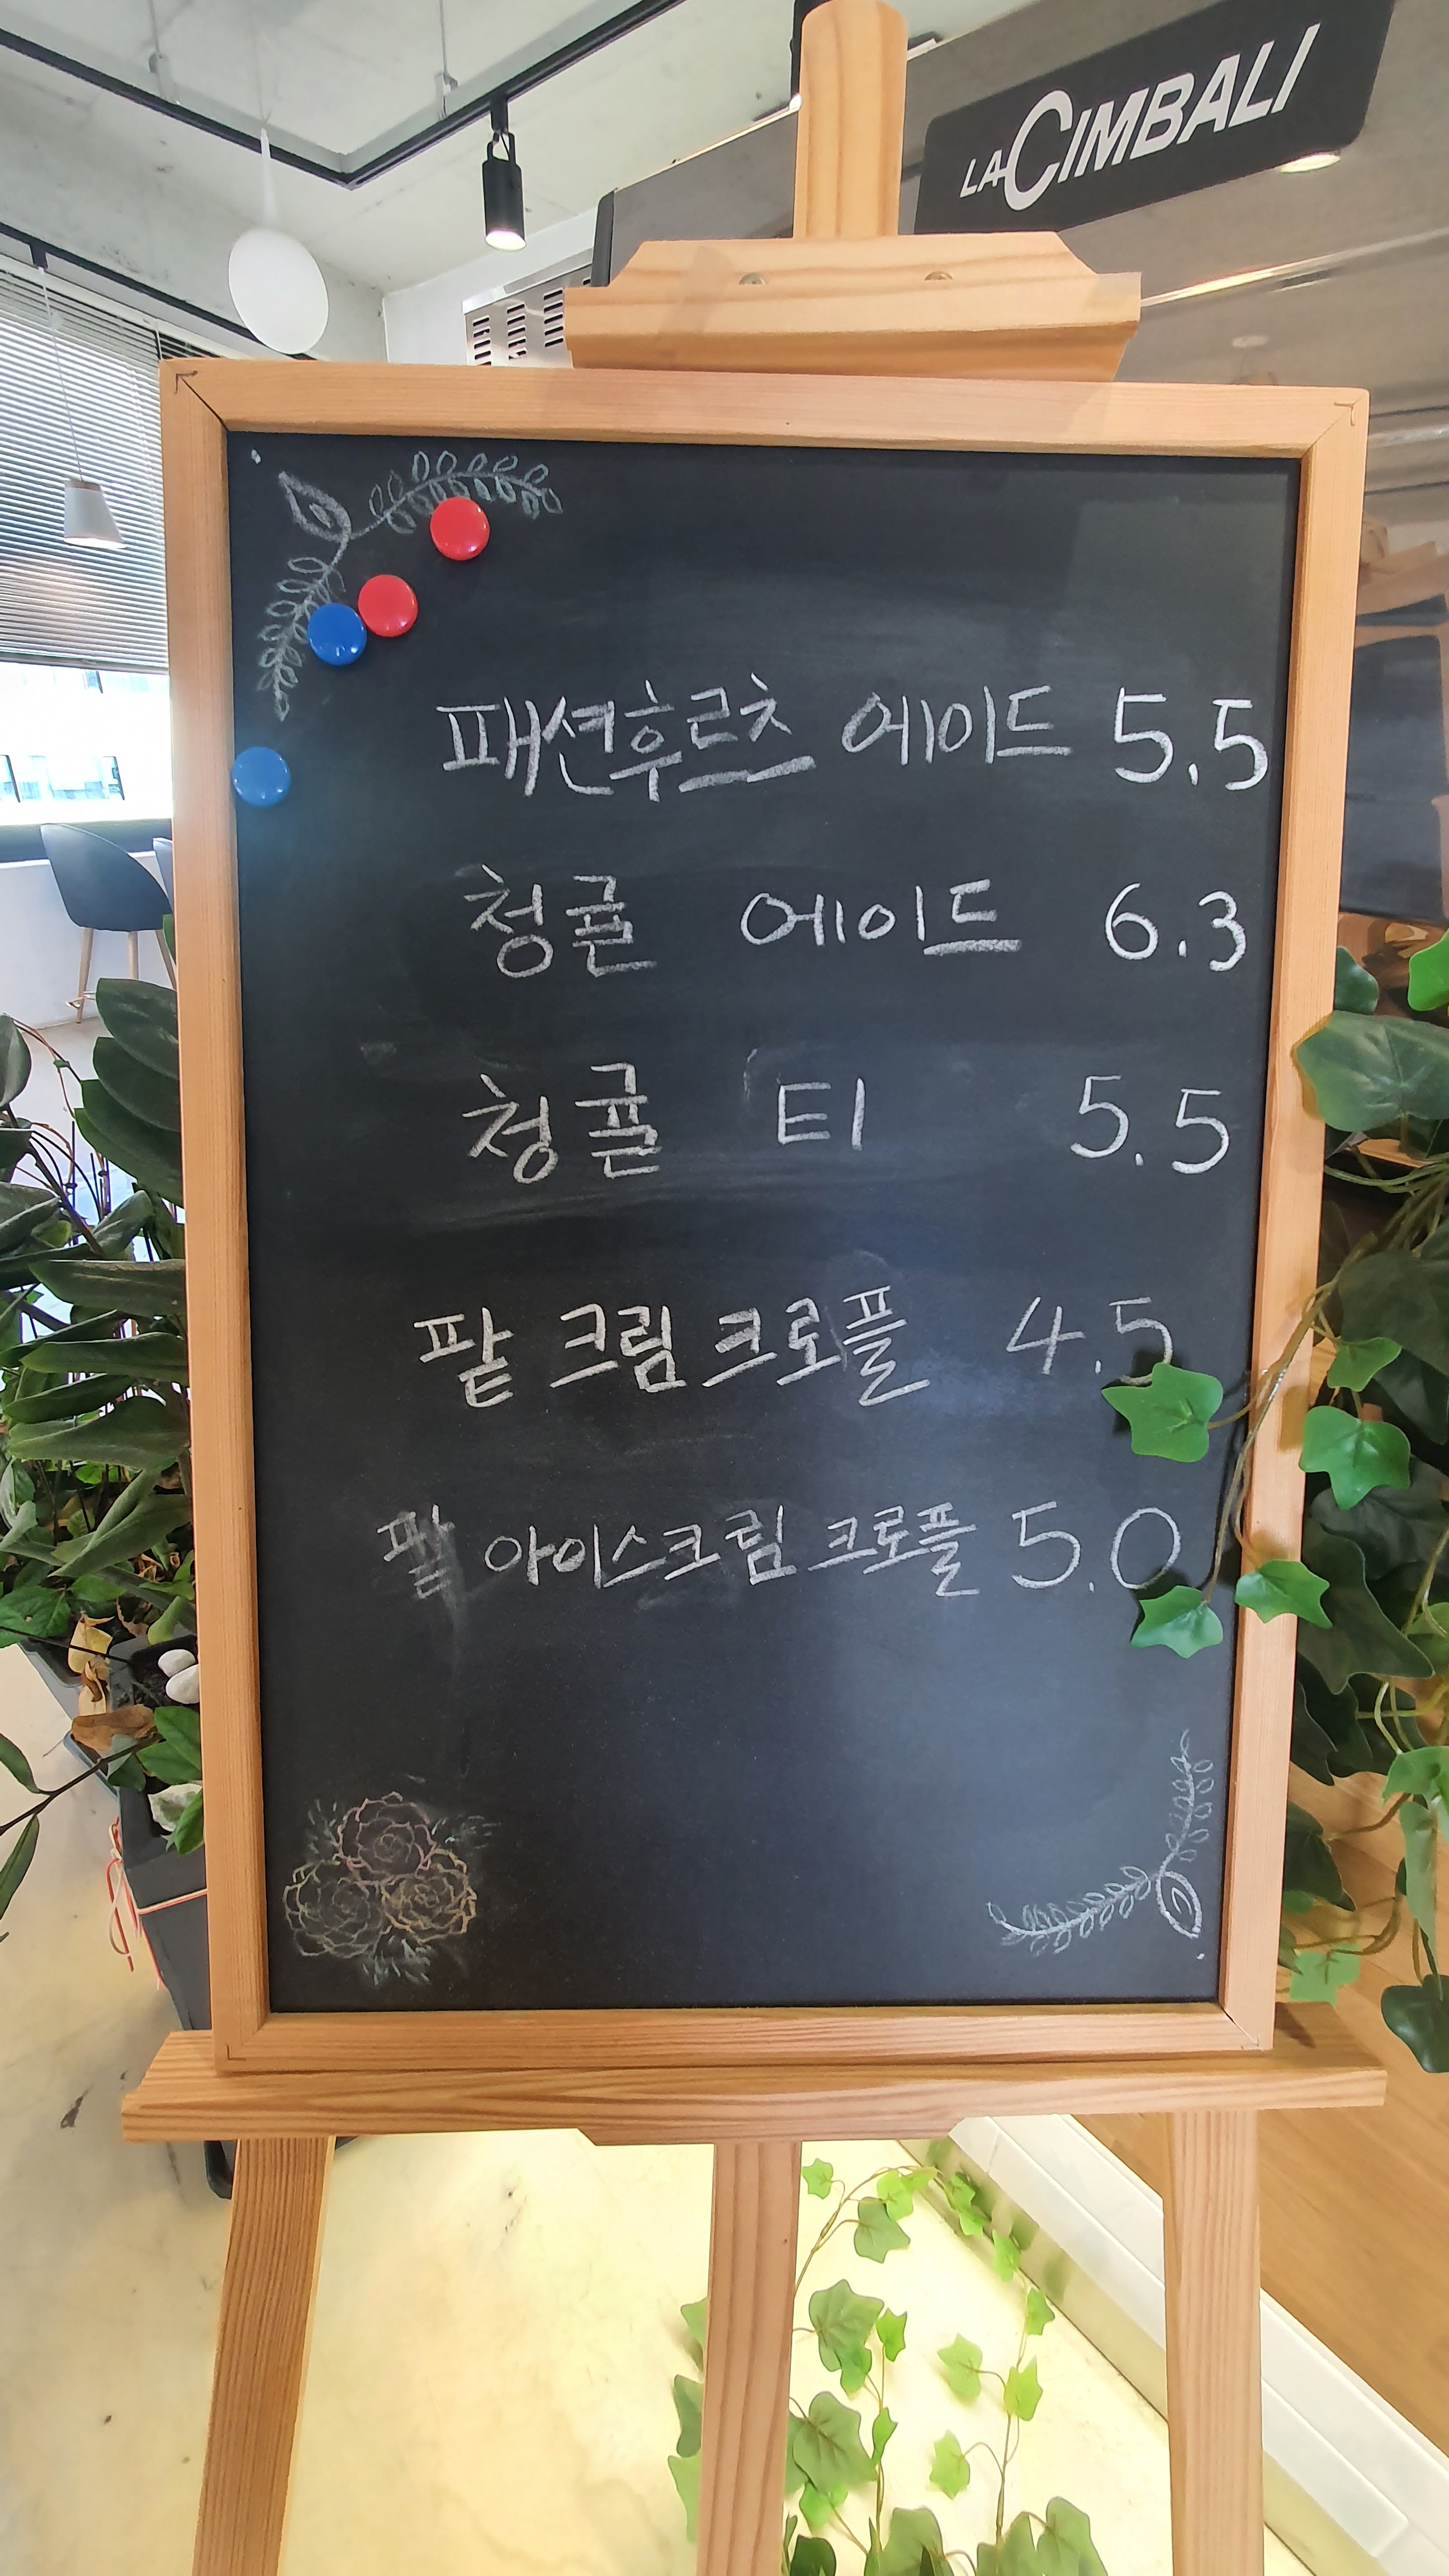 LA CIMBALI
패션후르츠 에이드 5.5
청귤 에이드 6.3
청귤 티 5.5
팥 크림 크로플 4.5
팥 아이스크림 크로플 5.0